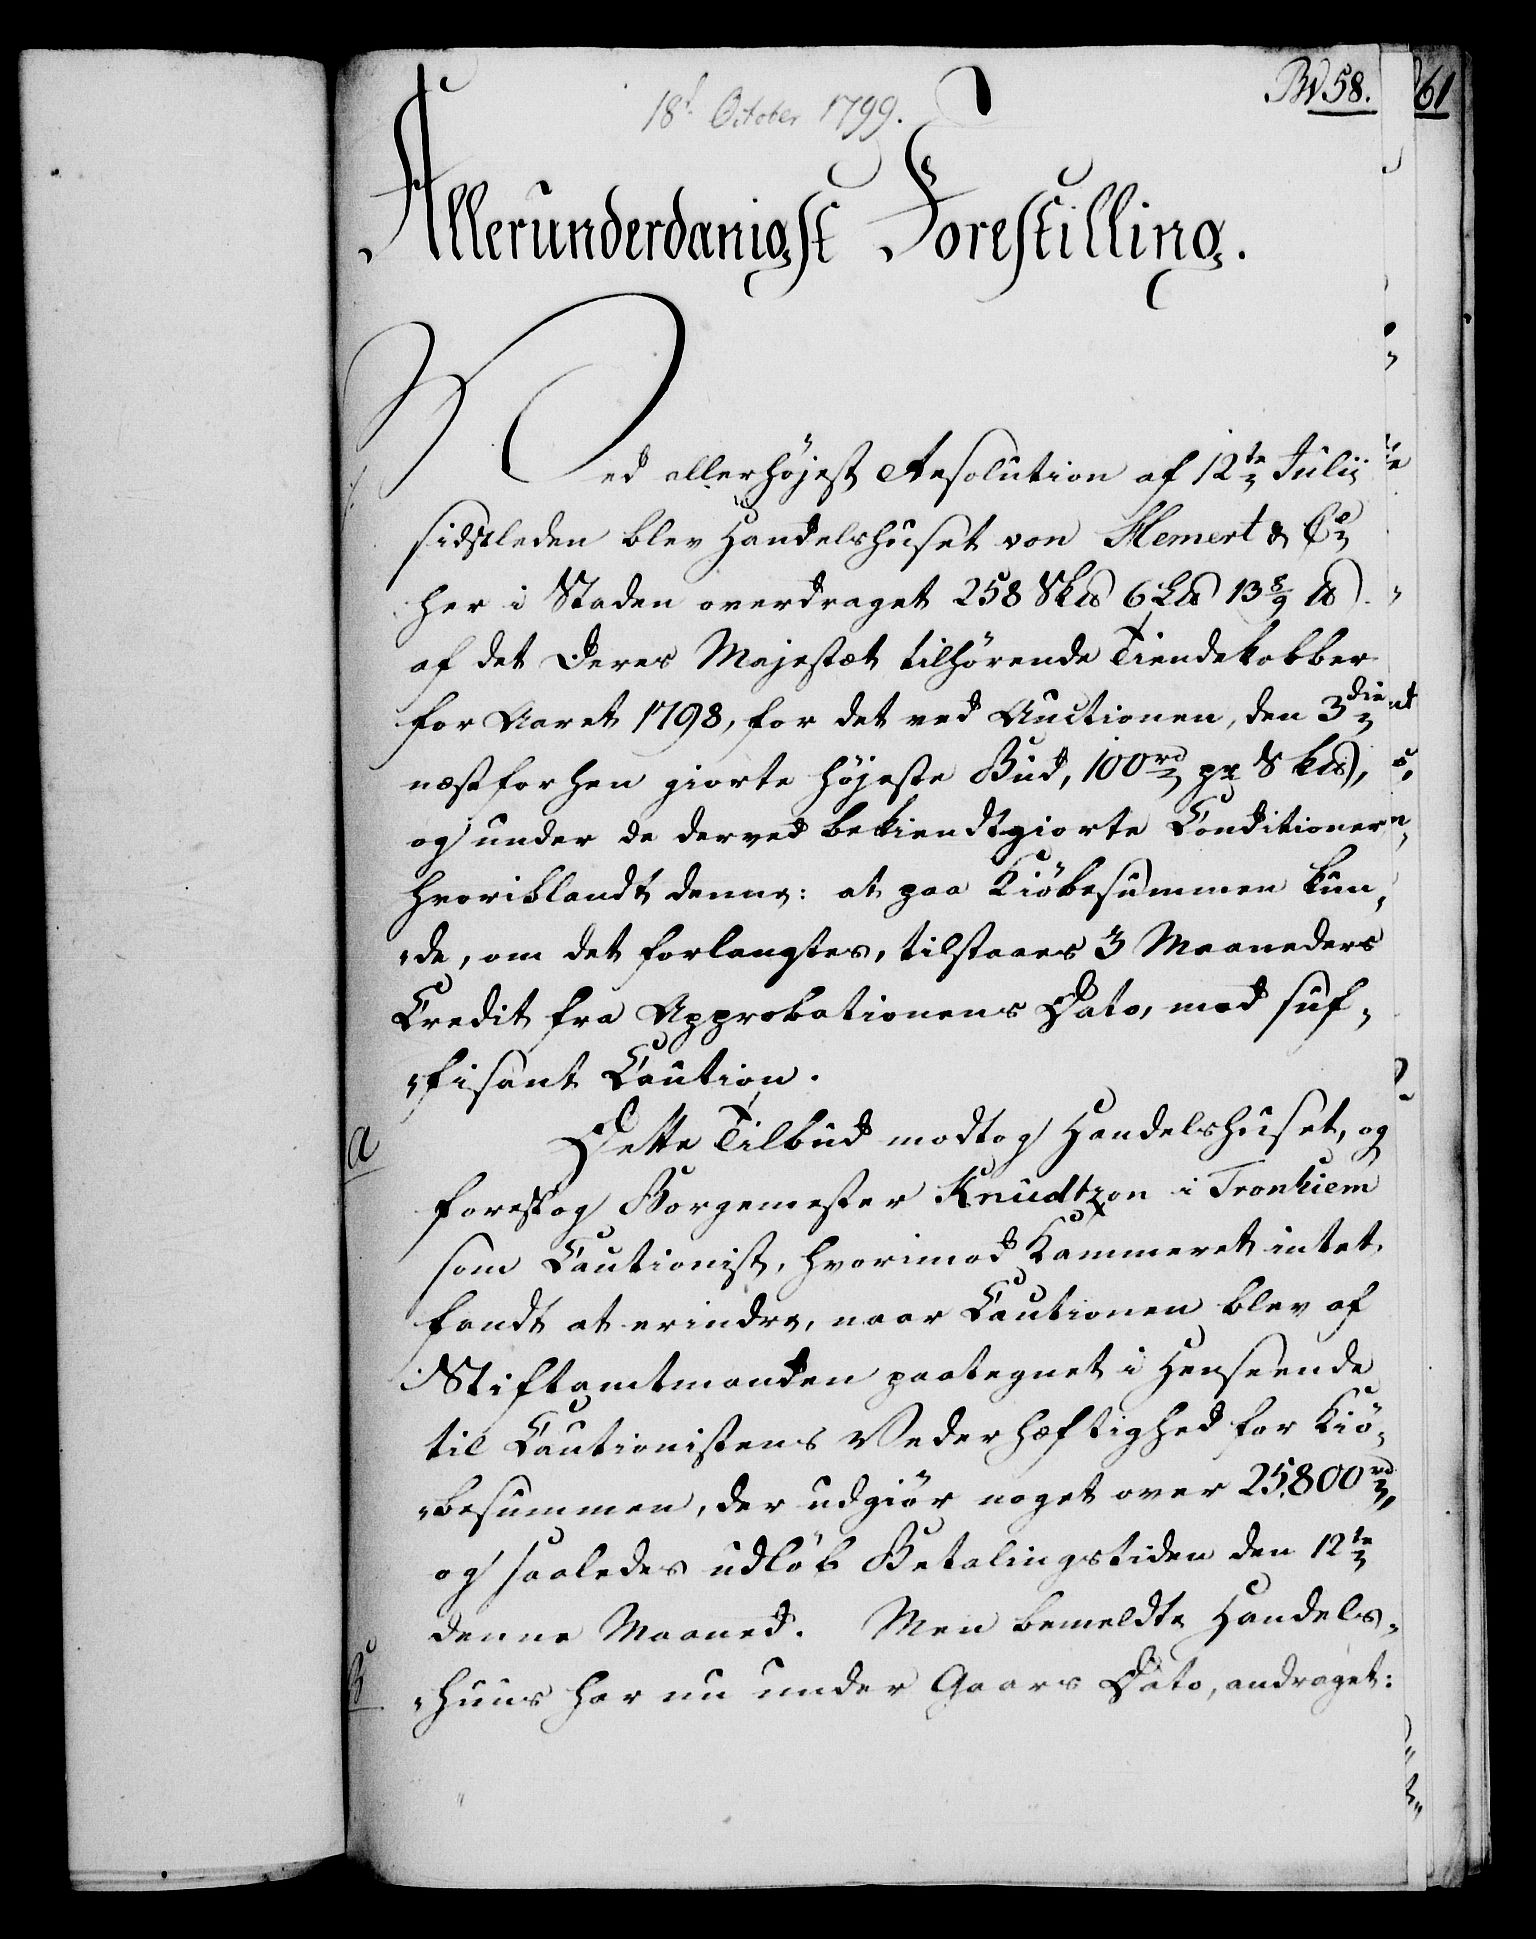 18de October 1799.
61
Allerunderdanigst Forestilling.
Ved allerhøjest Resolution af 12te Julii
sidstleden blev Handelshuset von Hemert & Co
her i Staden overdraget 258 Sk℔ 6 L℔ 13 8/9 ℔
af det Deres Majestæt tilhørende Tiendekobber
for Aaret 1798, for det ved Auctionen, den 3die
næstforhen giorte højeste Bud, 100 rd pr Sk℔,
og under de derved bekiendtgiorte Conditioner
hvoriblandt denne: at paa Kiøbesummen kun-
-de, om det forlangtes, tilstaaes 3 Maaneders
Credit fra Approbationens Dato, mod suf-
-fisant Caution.
a
Dette Tilbud modtog Handelshuset, og
foreslog Borgemester Knudtzon i Tronhiem
som Cautionist, hvorimod Kammeret intet
fandt at erindre, naar Cautionen blev af
Stiftamtmanden paategnet i Henseende
til Cautionistens Vederhæftighed for Kiø-
-besummen, der udgiør noget over 25,800 rd,
og saaledes udløb Betalingstiden den 12te
denne Maaned. Men bemeldte Handels-
B
-huus har nu under Gaars Dato, andraget: